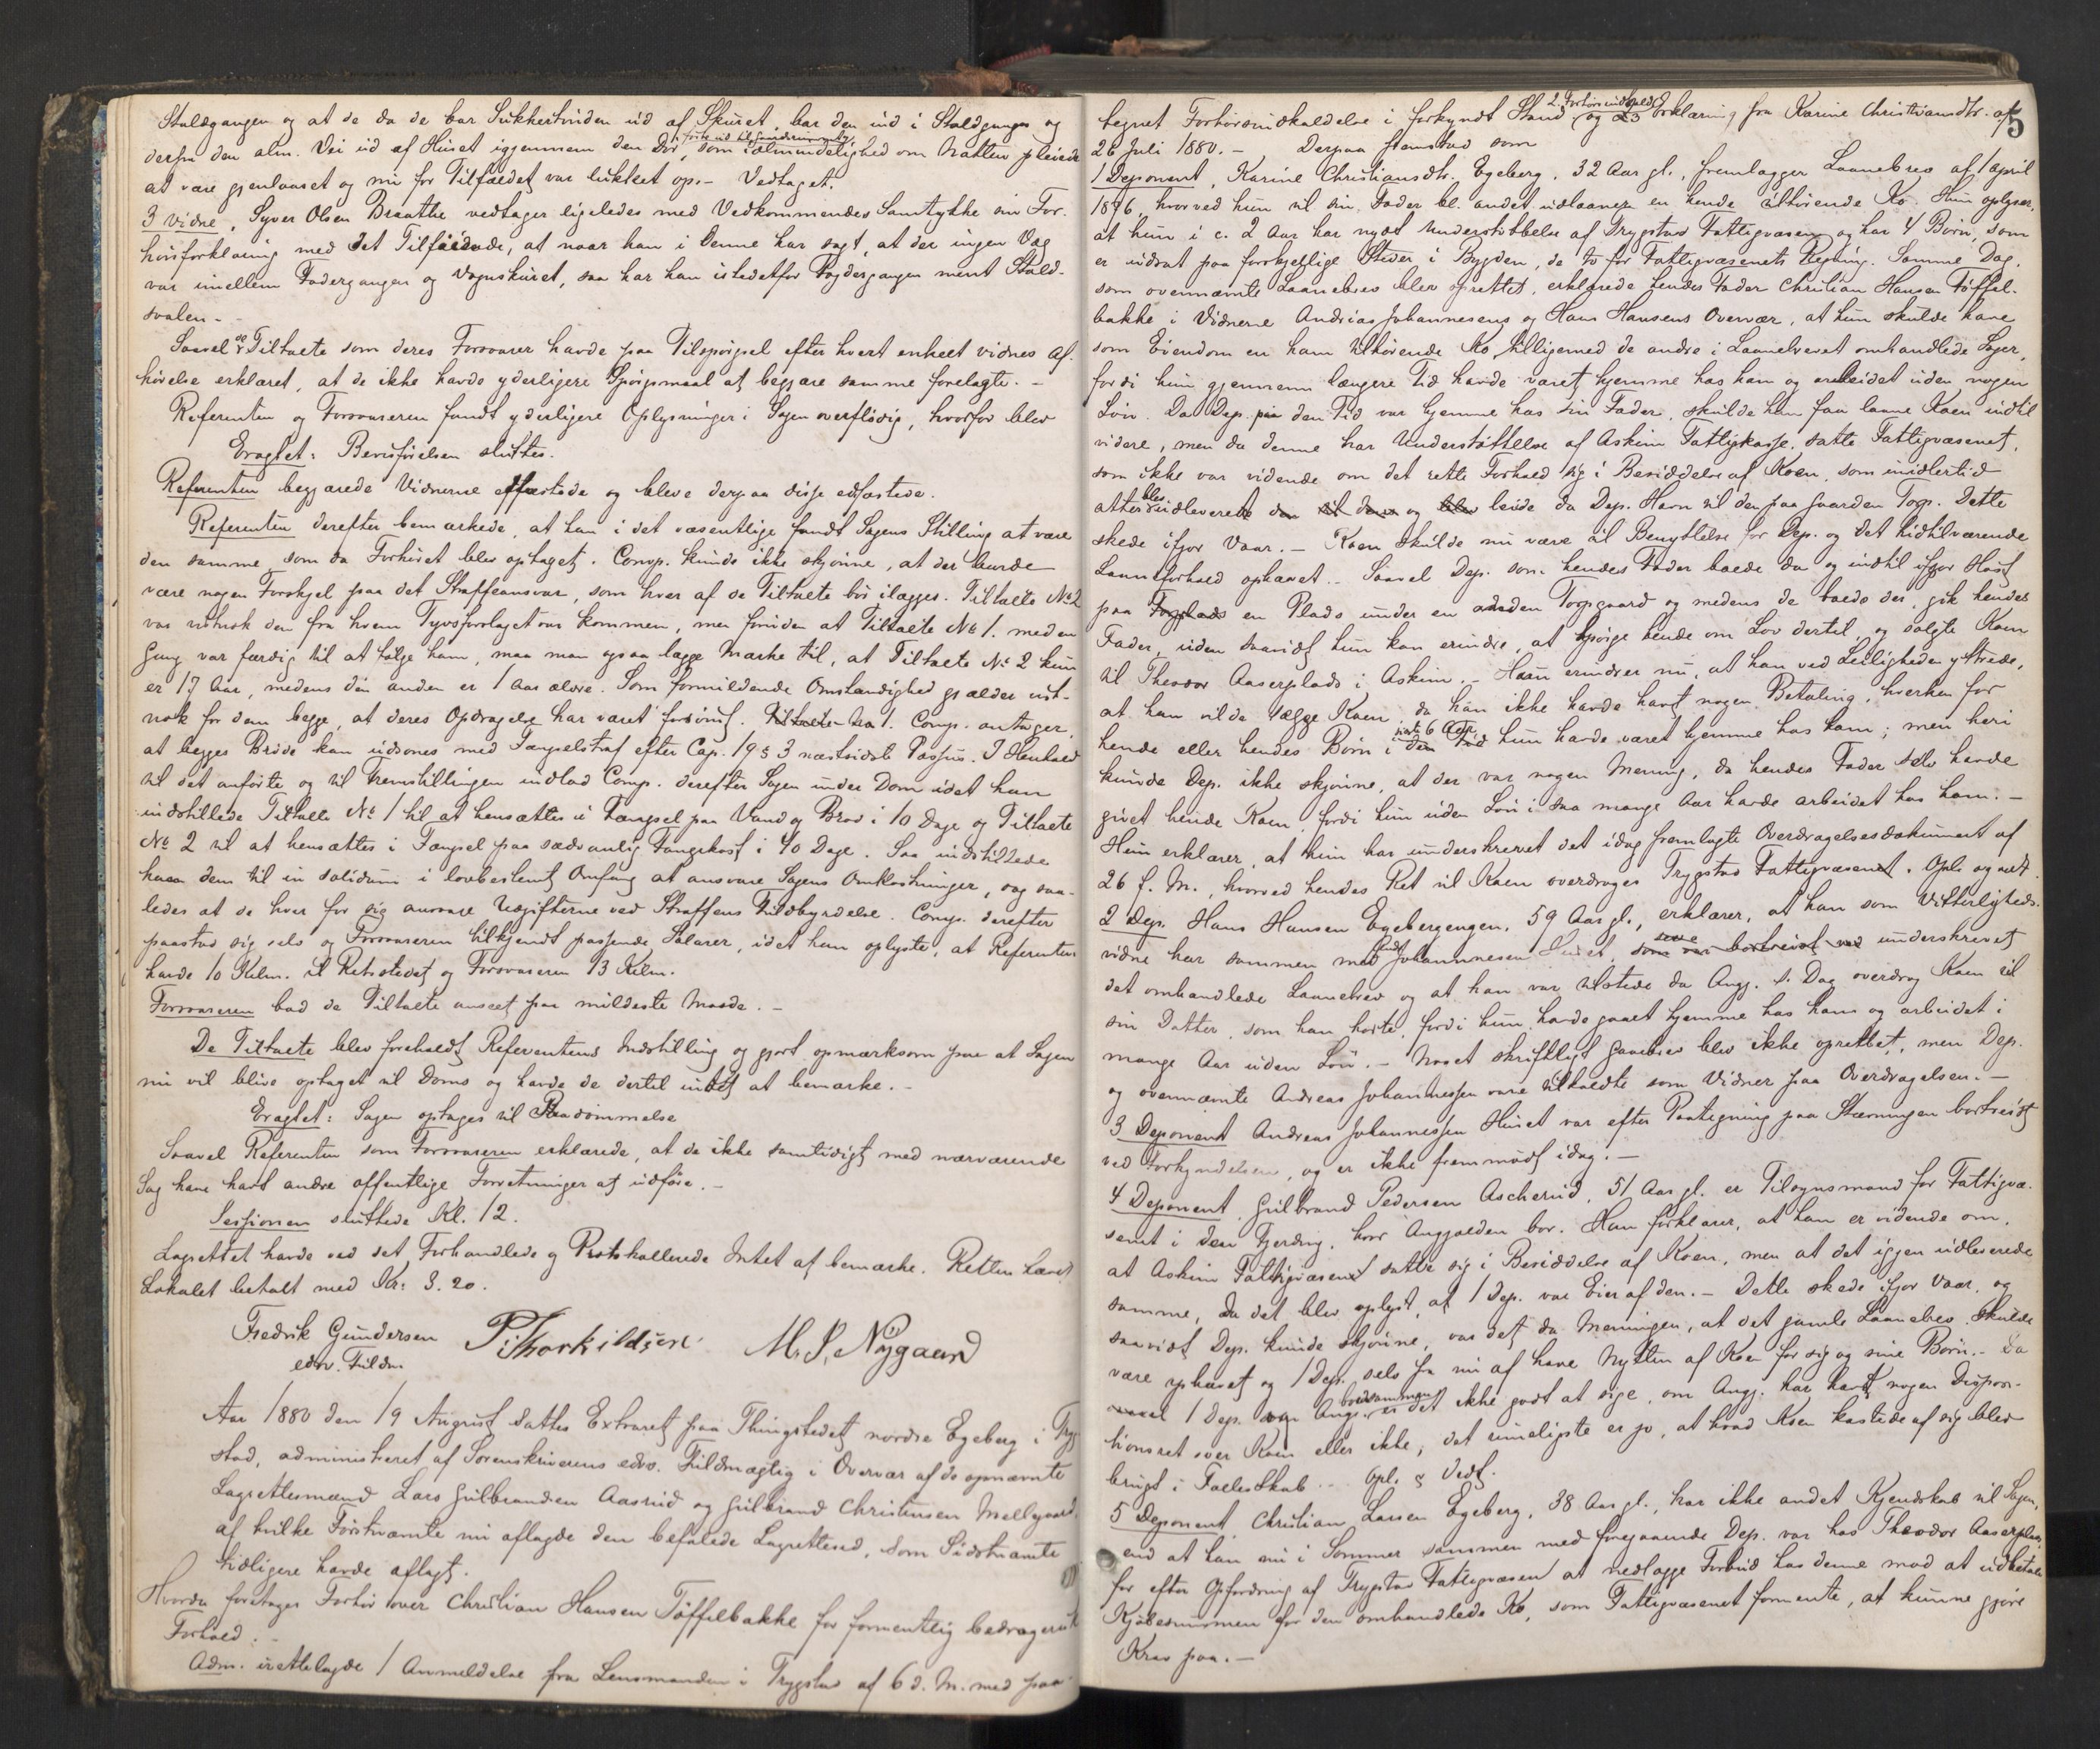 Staldgangen og at de da de bar Sukkertønden ud af Skuret, bar den ud i Staldgangen og
derfra den alm. Vei ud af Huset igjennem den Dør, som i almindelighed om Natten pleiede
at være gjenlaaset og nu for Tilfældet var lukket op. - Vedtaget.
3 Vidne, Syver Olsen Braathe vedtager ligeledes med Vedkommendes Samtykke sin For-
hørsforklaring med det Tilføiende, at naar han i denne har sagt, at der ingen Væg
var imellem Fodergangen og Vognskuret, saa har han istedetfor Fodergangen ment Stald-
svalen. -
Saavel de Tiltalte som deres Forsvarer havde paa Tilspørgsel efter hvert enkelt vidnes Af-
hørelse erklæret, at de ikke havde yderligere Spørgsmaal at begjære samme forelagte. -
Referenten og Forsvareren fandt yderligere Oplysninger i Sagen overflødig, hvorfor blev
Eragtet: Bevisførelsen sluttes.
Referenten begjærede Vidnerne edfæstede og bleve derpaa disse edfæstede.
Referenten derefter bemærkede, at han i det væsentlige fandt Sagens Stilling at være
den samme, som da Forhøret blev optaget. Comp. kunde ikke skjønne, at der burde
være nogen Forskjel paa det Straffeansvar, som hver af de Tiltalte bør ilægges. Tiltalte No 2
var vistnok den fra hvem Tyvsforslaget var kommen, men foruden at Tiltalte No 1. med en
Gang var færdig til at følge ham, maa man ogsaa lægge Mærke til, at Tiltalte No 2 kun
er 17 Aar, medens den anden er 1 Aar ældre. Som formildende Omstændighed gjælder vist-
nok for dem begge, at deres Opdragelse har været forsømt. Tiltalte No 1. Comp. antager,
at begges Brøde kan udsones med Fængselstraf efter Cap. 19 § 3 næstsidste Passus. I Henhold
til det anførte og til Fremstillingen indlod Comp. derefter Sagen under Dom idet han
indstillede Tiltalte No 1 til at hensættes i Fængsel paa Vand og Brød i 10 Dage og Tiltalte
No 2 til at hensættes i Fængsel paa sædvanlig Fangekost i 40 Dage. Saa indstillede
han dem til in solidum i lovbestemt Omfang at ansvare Sagens Omkostninger, og saa-
ledes at de hver for sig ansvare Udgifterne ved Straffens Fuldbyrdelse. Comp. derefter
paastod sig selv og Forsvareren tilkjendt passende Salærer, idet han oplyste, at Referenten
havde 10 Kilm. til Retsstedet og Forsvareren 13 Kilm.
Forsvareren bad de Tiltalte anseet paa mildeste Maade. -
De Tiltalte blev foreholdt Referentens Indstilling og gjort opmærksom paa at Sagen
nu vil blive optaget til Doms og havde de dertil intet at bemærke. -
Eragtet: Sagen optages til Paadømmelse
Saavel Referenten som Forsvareren erklærede, at de ikke samtidigt med nærværende
Sag have havt andre offentlige Forretninger at udføre. -
Sessionen sluttede Kl. 12.
Lagrettet havde ved det Forhandlede og Protokollerede Intet at bemærke. Retten hævet
Lokalet betalt med Kr: 3.20.
Fredrik Gundersen P. Thorkildsen M. S. Nygaard
edsv. Fuldm.
Aar 1880 den 19 August sattes Extraret paa Thingstedet nordre Egeberg i Tryg
stad, administreret af Sorenskriverens edsv. Fuldmægtig i Overvær af de opnævnte
Lagrettesmænd Lars Gulbrandsen Aasrud og Gulbrand Christensen Mellegaard,
af hvilke Førstnævnte nu aflagde den befalede Lagretteseed, som Sidstnævnte
tidligere havde aflagt.
Hvorda foretages Forhør over Christian Hansen Tøffelbakke for formentlig bedragerisk
Forhold. -
Adm. irettelagde 1 Anmeldelse fra Lensmanden i Trygstad af 6 d. M. med paa-
5
tegnet Forhørsindkaldelse i forkyndt Stand, 2 Forhørsindkaldelse og 3 Erklæring fra Karine Christiansdtr. af
26 Juli 1880. - Derpaa fremstod som
1 Deponent, Karine Christiansdtr. Egeberg, 32 Aar gl., fremlægger Laanebrev af 1 April
1876, hvorved hun til sin Fader bl. andet udlaaner en hende tilhørende Ko. Hun oplyser,
at hun i c. 2 Aar har nydt Understøttelse af Trygstad Fattigvæsen og har 4 Børn, som
er udsat paa forskjellige Steder i Bygden, de to for Fattigvæsenets Regning. Samme Dag,
som ovennævnte Laanebrev blev oprettet, erklærede hendes Fader Christian Hansen Tøffel-
bakke i Vidnerne Andreas Johannesens og Hans Hansens Overvær, at hun skulde have
som Eiendom en ham tilhørende Ko tilligemed de andre i Laanebrevet omhandlede Sager,
fordi hun gjennem længere Tid havde været hjemme hos ham og arbeidet uden nogen
Løn. Da Dep. paa den Tid var hjemme hos sin Fader, skulde han faa laane Koen indtil
videre, men da denne har Understøttelse af Askim Fattigkasse, satte Fattigvæsenet,
som ikke var vidende om det rette Forhold sig i Besiddelse af Koen, som imidlertid
atter blev udleveret og leiede da Dep. Havn til den paa Gaarden Torp. Dette
skede ifjor Vaar. - Koen skulde nu være til Benyttelse for Dep. og det hidtilværende
Laaneforhold ophævet. - Saavel Dep. som hendes Fader boede da og indtil ifjor Høst
paa en Plads under en anden Torpgaard og medens de boede der, gik hendes
Fader, uden saavidt hun kan erindre, at spørge hende om Lov dertil, og solgte Koen
til Theodor Aaserplads i Askim. - Hun erindrer nu, at han ved Leiligheden yttrede,
at han vilde sælge Koen, da han ikke havde havt nogen Betaling, hverken for
hende eller hendes Børn i de 6 Aar, hun havde været hjemme hos ham; men heri
kunde Dep. ikke skjønne, at der var nogen Mening, da hendes Fader selv havde
givet hende Koen, fordi hun uden Løn i saa mange Aar havde arbeidet hos ham. -
Hun erklærer, at hun har underskrevet det idag fremlagte Overdragelsesdokument af
26 f. M., hvorved hendes Ret til Koen overdrages Trygstad Fattigvæsenet. Opl. og vedt.
2 Dep. Hans Hansen Egebergengen, 59 Aar gl., erklærer, at han som Vitterligheds-
vidne har sammen med Andr. Johannesen Huset, som var bortreist ved underskrevet
det omhandlede Laanebrev og at han var tilstede da Angj. s. Dag overdrog Koen til
sin Datter, som han hørte, fordi hun havde gaaet hjemme hos ham og arbeidet i
mange Aar uden Løn. - Noget skriftligt Gavebrev blev ikke oprettet, men Dep.
og ovennævnte Andreas Johannessen vare tilkaldte som Vidner paa Overdragelsen. -
3 Deponent Andreas Johannessen Huset var efter Paategning paa Stævningen bortreist
ved Forkyndelsen, og er ikke fremmødt idag. -
4 Deponent, Gulbrand Pedersen Ascherud, 51 Aar gl. er Tilsynsmand for Fattigvæ-
senet i den Fjerding, hvor Angjældende bor. Han forklarer, at han er vidende om,
at Askim Fattigvæsenet satte sig i Besiddelse af Koen, men at det igjen udleverede
samme, da det blev oplyst, at 1 Dep. var Eier af den. - Dette skede ifjor Vaar, og
saavidt Dep. kunde skjønne, var det da Meningen, at det gamle Laanebrev skulde
være ophævet og 1 Dep. selv fra nu af have Nytten af Koen for sig og sine Børn. - Da
1 Dep. og Angj. bode sammen er det ikke godt at sige, om Angj. har havt nogen Disposi-
tionsret over Koen eller ikke; det rimeligste er jo, at hvad Koen kastede af sig blev
brugt i Fællesskab. - Opl. & Vedt.
5 Deponent, Christian Larsen Egeberg, 38 Aar gl., har ikke andet Kjendskab til Sagen,
end at han nu i Sommer sammen med foregaaende Dep. var hos Theodor Aaserplads
for efter Opfordring af Trygstad Fattigvæsen at nedlægge Forbud hos denne mod at udbetale
Kjøbesummen for den omhandlede Ko, som Fattigvæsenet formente, at kunne gjøre
Krav paa. -